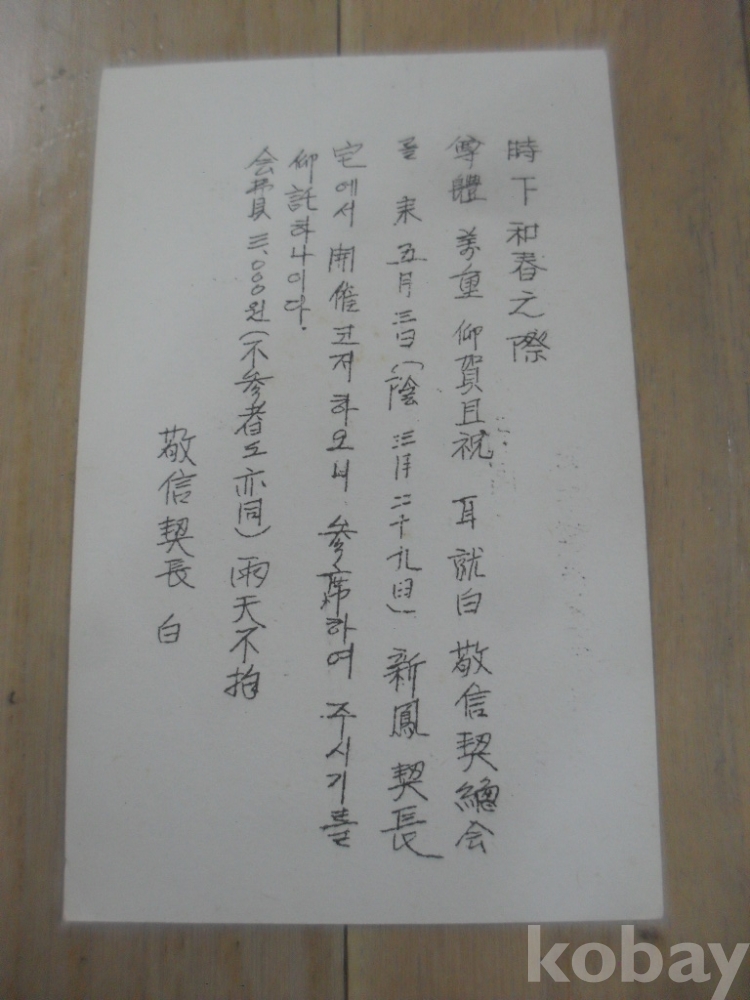 時下和春之際
尊體 萬重 仰賀且祝. 耳就白 敬信契總会
를 来 五月三日(陰 三月二十九日) 新鳳 契長
宅에서 開催코저 하오니 參席하여 주시기를
仰託하나이다.
会費 三,000원(不參者도 亦同) 雨天不拘
敬信契長 白
kobay